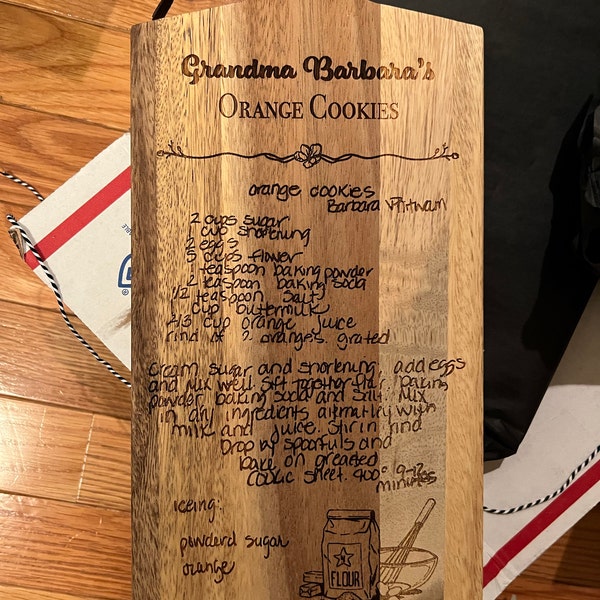 Grandma Barbara's
ORANGE COOKIES
orange cookies
Barbara
2 cups sugar
cup shortening
2 eggs
5 cups flower
teaspoon baking powder
2 teaspoon baking soda
1/2 teaspoon salt
cup buttermilk
2/3 cup orange juice
rind of 2 oranges grated
cream sugar and shortening, add eggs
and mix well. sift together flour, baking
powder, baking soda and salt. Mix
in dry ingredients alternatley with
milk and juice. stir in rind
Drop by spoonfuls and
bake on greated
cookie sheet. 400° 9-12
minutes
iceing:
powderd sugar
orange
FLOUR